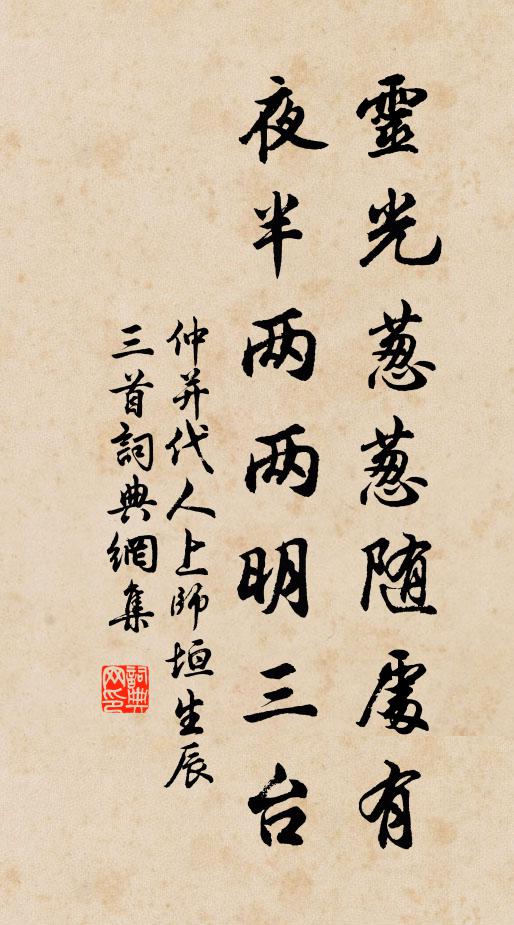 靈光葱葱随處有
夜半两两明三台
仲并代人上師垣生辰
三首詞典網集
詞典
网印